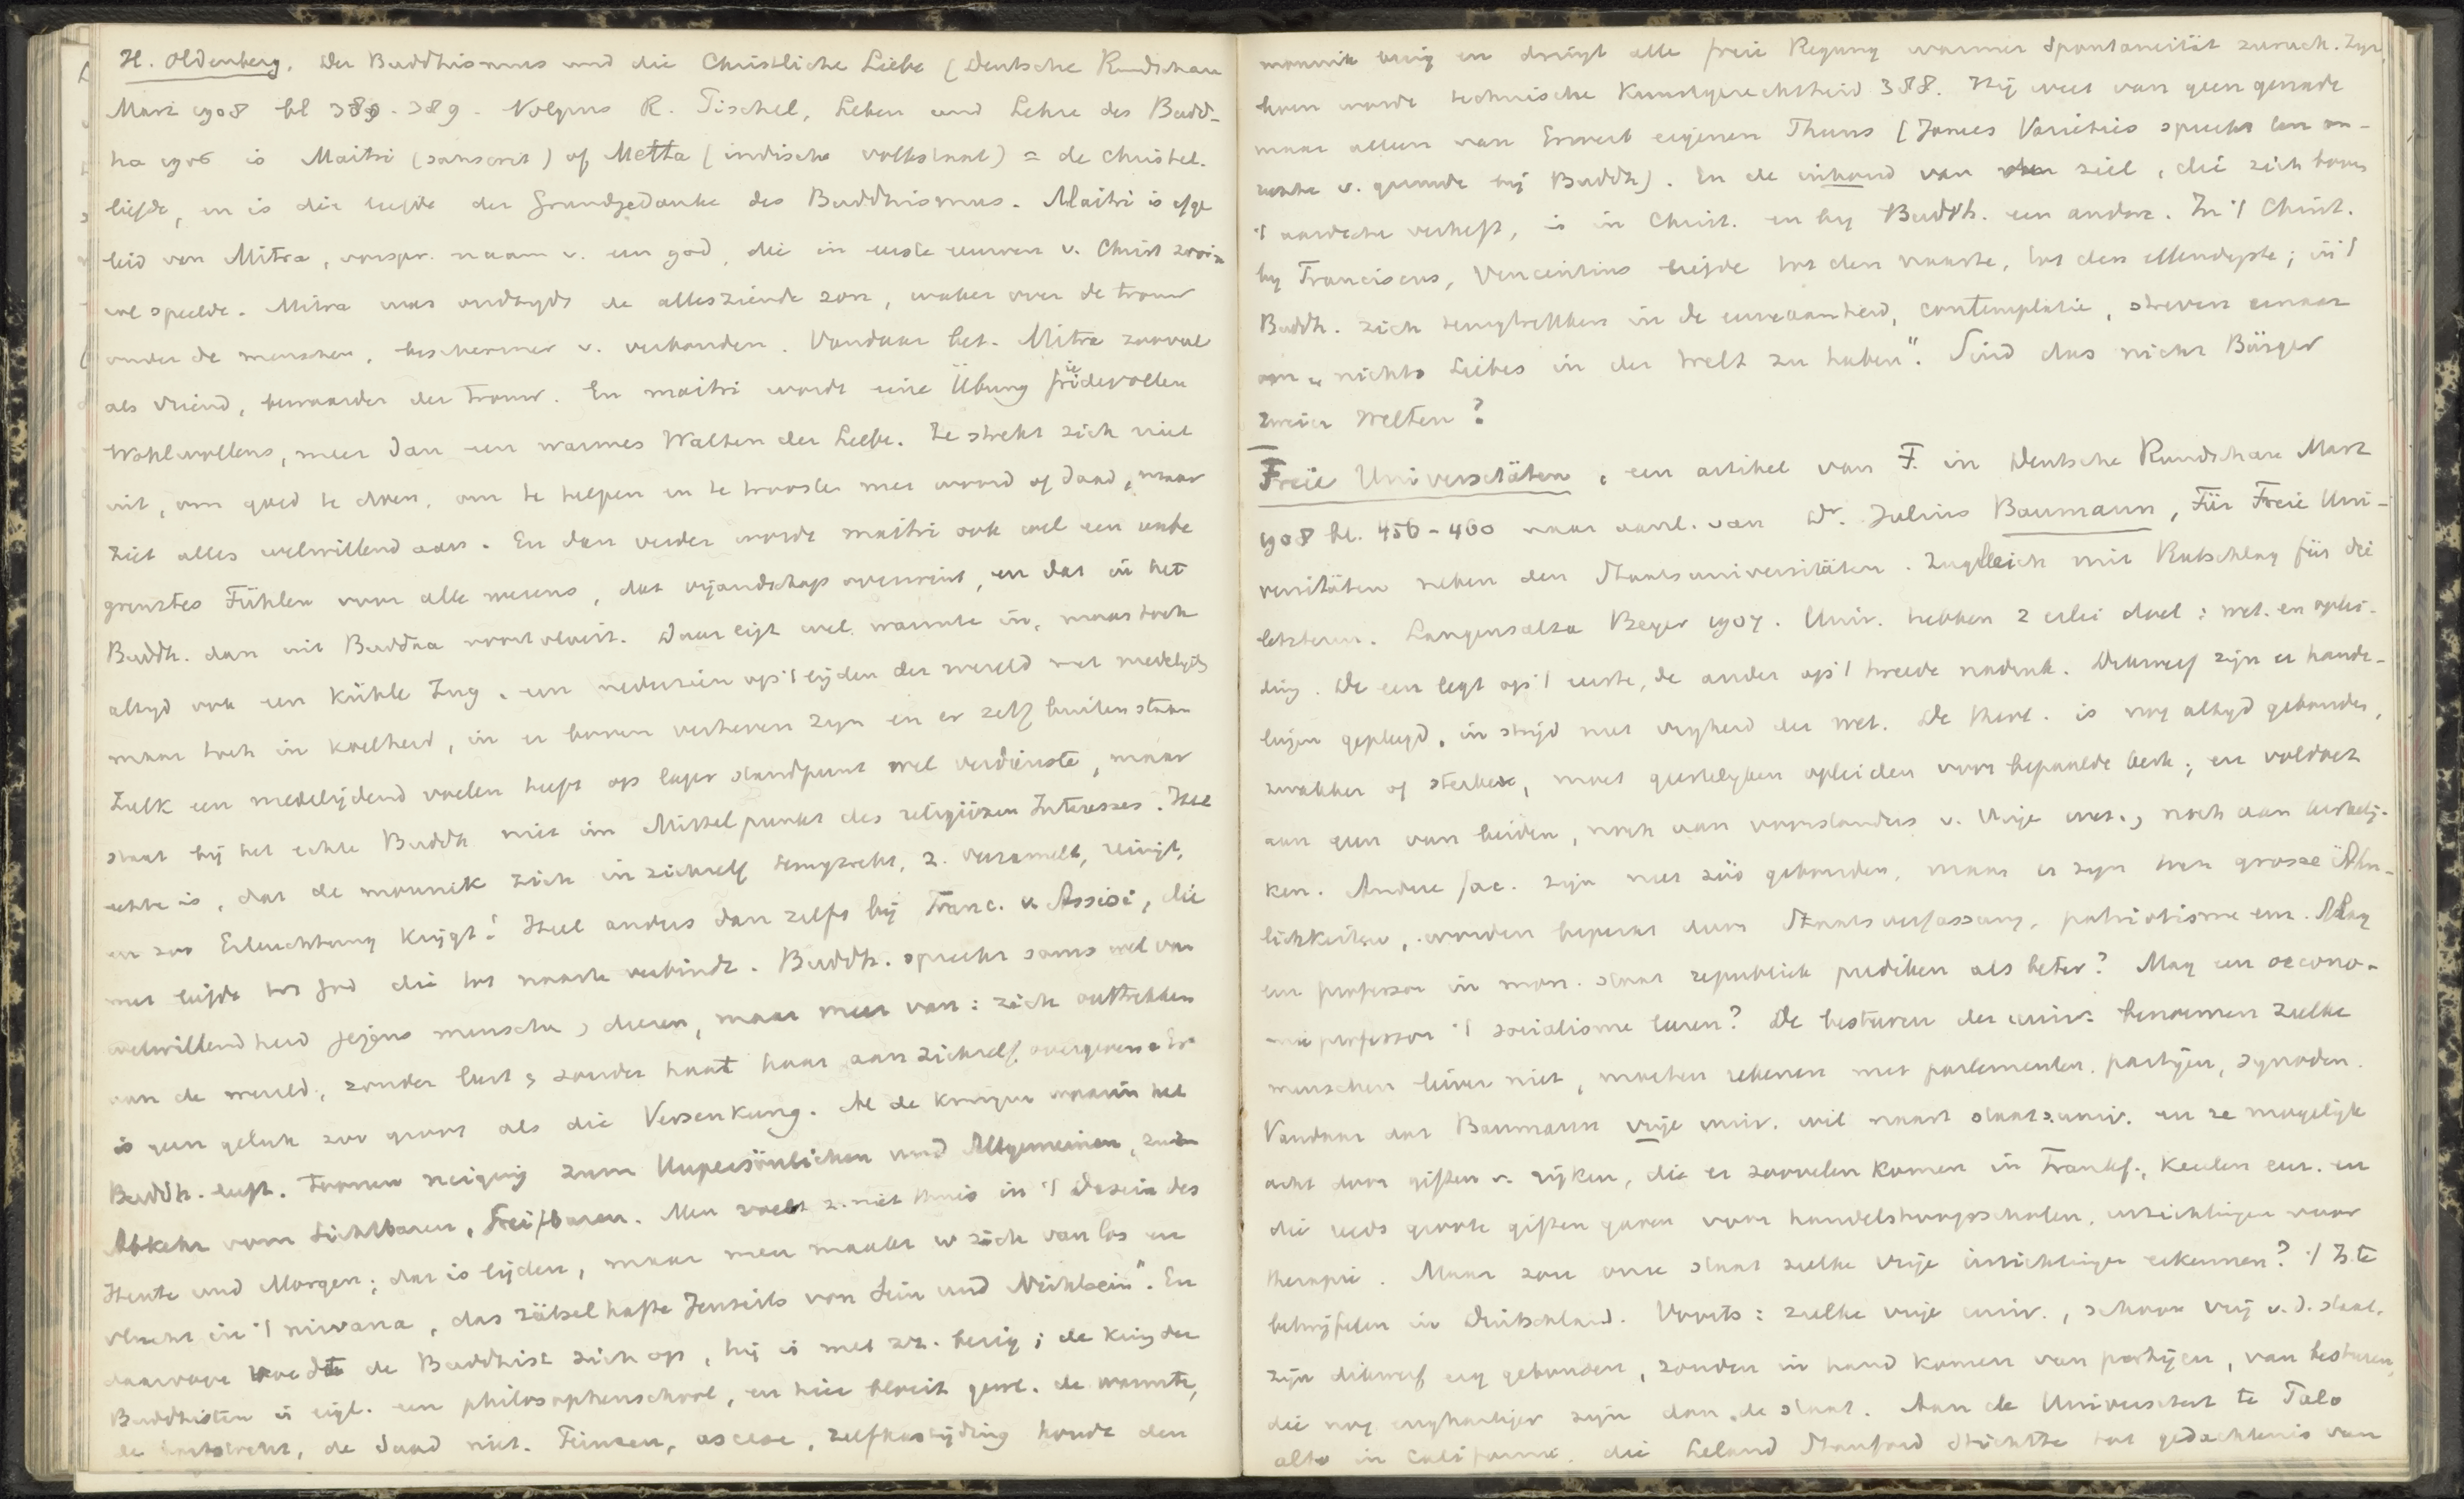 H. Oldenberg. Der Buddhismus und die Christliche Liebe (Deutsche Rundschau
Marz 1908 bl 380-389. Volgens R. Pischel, Leben und Lehre des Budd-
ha 1906 is Maitri (sanscrit) of Metta (indische volkstaal) = de christel.
liefde, en is die liefde der Grundgedanke des Buddhismus. Maitri is afge
leid van Mitra, oorspr. naam v. een god, die in eerste eeuwen v. Christ zoo'n
rol speelde. Mitra was oudtyds de allesziende zon, waker over de trouw
onder de menschen, beschermer v. verbonden. Vandaar bet. Mitra zooveel
als vriend, bewaarder der trouw. En maitri wordt eine Übung friedevollen
Wohlwollens, meer dan een warmes Walten der Liebe. Ze strekt zich niet
uit, om goed te doen, om te helpen en te troosten met woord of daad, maar
ziet alles welwillend aan. En dan verder wordt maitri ook wel een unbe
grenztes Fühlen voor alle wezens, dat vijandschap overwint, en dat in het
Buddh. dan uit Buddha voortvloeit. Daar ligt wel warmte in, maar toch
altyd ook een kühle Zug, een nederzien op 't lijden der wereld met medelijd
maar toch in koelheid, in er boven verheven zyn en er zelf buiten staan
Zulk een medelijdend voelen heeft op lager standpunt wel verdienste, maar
staat bij het echte Buddh niet im Mittelpunkt des religiösen Interesses. Het
echte is, dat de monnik zich in zichzelf terugtrekt, z. verzamelt, reinigt,
en zoo Erleuchtung krijgt! Heel anders dan zelfs bij Franc. v. Assisi, die
met liefde tot God die tot naaste verbindt. Buddh. spreekt soms wel van
welwillendheid jegens menschen, dieren, maar meer van: zich onttrekken
aan de wereld, zonder lust, zonder haat haar aan zichzelf overgeven. Er
is geen geluk zoo groot als die Versenkung. Al de kringen waarin het
Buddh. leeft. Toonen neiging zum Unpersönlichen und Allgemeinen, zur
Abkehr vom Sichtbaren, Greifbaren. Men voelt z. niet thuis in 't Dasein des
Heute und Morgen; dat is lijden, maar men maakt er zich van los en
vlucht in 't nirvana, das rätselhafte Jenseits von Sein und Nichtsein". En
daarvoor voedt de Buddhist zich op, hij is met zz. bezig; de kring der
Buddhisten is eigl. een philosophenschool, en hier bloeit gewl. de warmte,
de hartstocht, de daad niet. Feinsen, ascese, zelfkastijding houdt den
monnik bezig en drängt alle freie Regung warmer Spontaneität zuruck. Zyn
leven wordt technische Kunstgerechtheid 388. Hij weet van geen genade
maar alleen van Erwerb eigenen Thuns (James Varieties spreekt ten on-
rechte v. genade bij Buddh). En de inhoud van den ziel, die zich boven
't aardsche verheft, is in Christ. en by Buddh. een andere. In 't Christ.
by Franciscus, Vincentius liefde tot den naaste, tot den ellendigste; in 't
Buddh. zich terugtrekken in de eenzaamheid, contemplatie, streven ernaar
om „nichts Liebes in der Welt zu haben". Sind das nicht Bürger
zweier Welten?
Freie Universitäten, een artikel van F. in Deutsche Rundschau Marz
1908 bl. 456-460 naar aanl. van Dr. Julius Baumann, Für Freie Uni-
versitäten neben den Staatsuniversitäten. Zugleich mit Ratschlag für die
letzteren. Langensalza Beyer 1907. Univ. hebben 2 erlei doel: wet. en oplei-
ding. De een legt op 't eerste, de ander op 't tweede nadruk. Dikwerf zijn er hande-
lingen gepleegd, in strijd met vryheid der wet. De theol. is nog altyd gebonden,
zwakker of sterker, moet geestelyken opleiden voor bepaalde kerk; en voldoet
aan geen van beiden, noch aan voorstanders v. vrije wet., noch aan kerkelij-
ken. Andere fac. zijn niet zóó gebonden, maar er zyn toch grosse Ähn-
lichkeiten, worden beperkt door Staatsverfassung, patriotisme enz. Mag
een professor in mon. staat republiek prediken als beter? Mag een oecono-
mie professor 't socialisme leeren? De besturen der univ. benoemen zulke
menschen liever niet, moeten rekenen met parlementen, partijen, synoden.
Vandaar dat Baumann vrije univ. wil naast staatsuniv. en ze mogelijk
acht door giften v. rijken, die er zoovelen komen in Frankf., Keulen enz. en
die reeds groote giften gaven voor handelshoogescholen, inrichtingen voor
therapie. Maar zou onze staat zulke vrije inrichtingen erkennen? 't Is te
betwijfelen in Duitschland. Voorts: zulke vrije univ., schoon vrij v. d. staat,
zijn dikwerf erg gebonden, zouden in hand komen van partijen, van besturen,
die nog enghartiger zijn dan de staat. Aan de Universiteit te Palo
alto in Californië, die Leland Stanford stichtte tot gedachtenis van